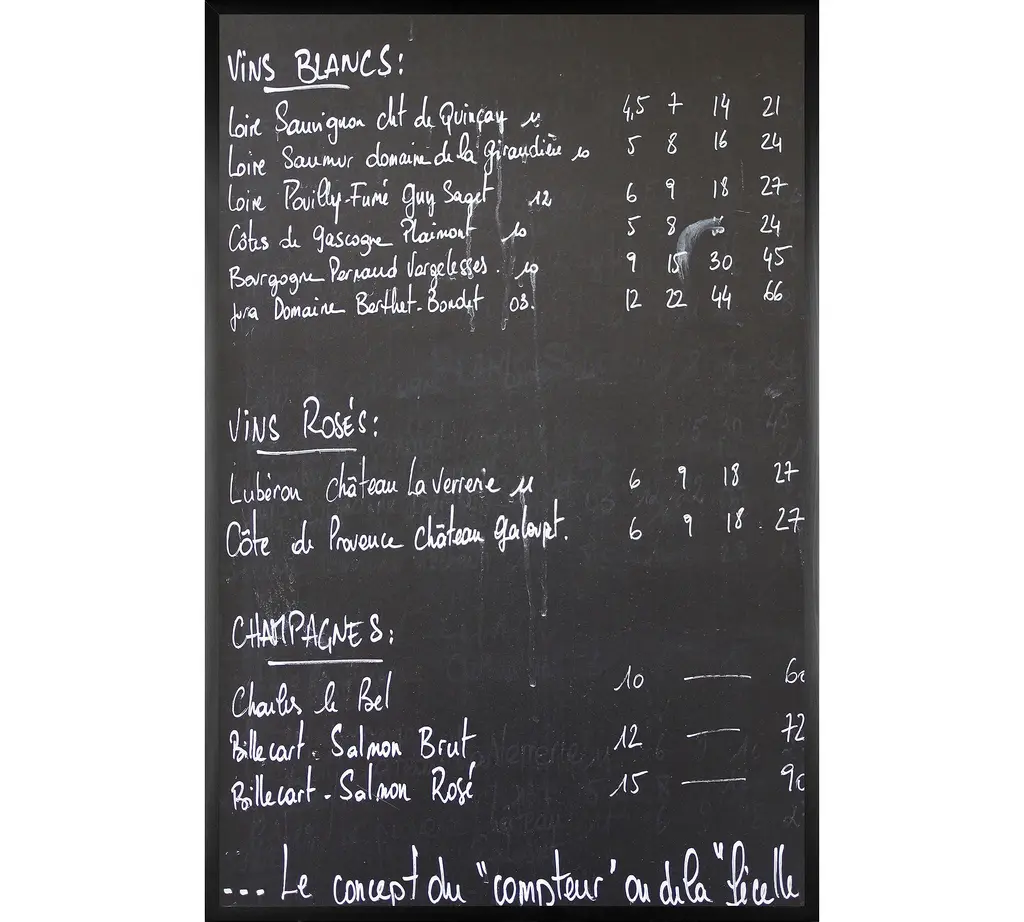 VINS BLANCS:
Loire Sauvignon cht de Quinçay 11 4,5 7 14 21
Loire Saumur domaine de la Giraudière 10 5 8 16 24
Loire Pouilly-Fumé Guy Saget 12 6 9 18 27
Côtes de Gascogne Plaimont 10 5 8 16 24
Bourgogne Pernaud Vergelesses. 10 9 15 30 45
Jura Domaine Berthet-Bondet 03. 12 22 44 66
VINS ROSÉS:
Lubéron château La Verrerie 11 6 9 18 27
Côte de Provence Château Galoupt. 6 9 18. 27
CHAMPAGNES:
Charles le Bel 10 — 60
Billecart-Salmon Brut 12 — 72
Billecart-Salmon Rosé 15 — 90
... Le concept du "compteur" ou de la "ficelle